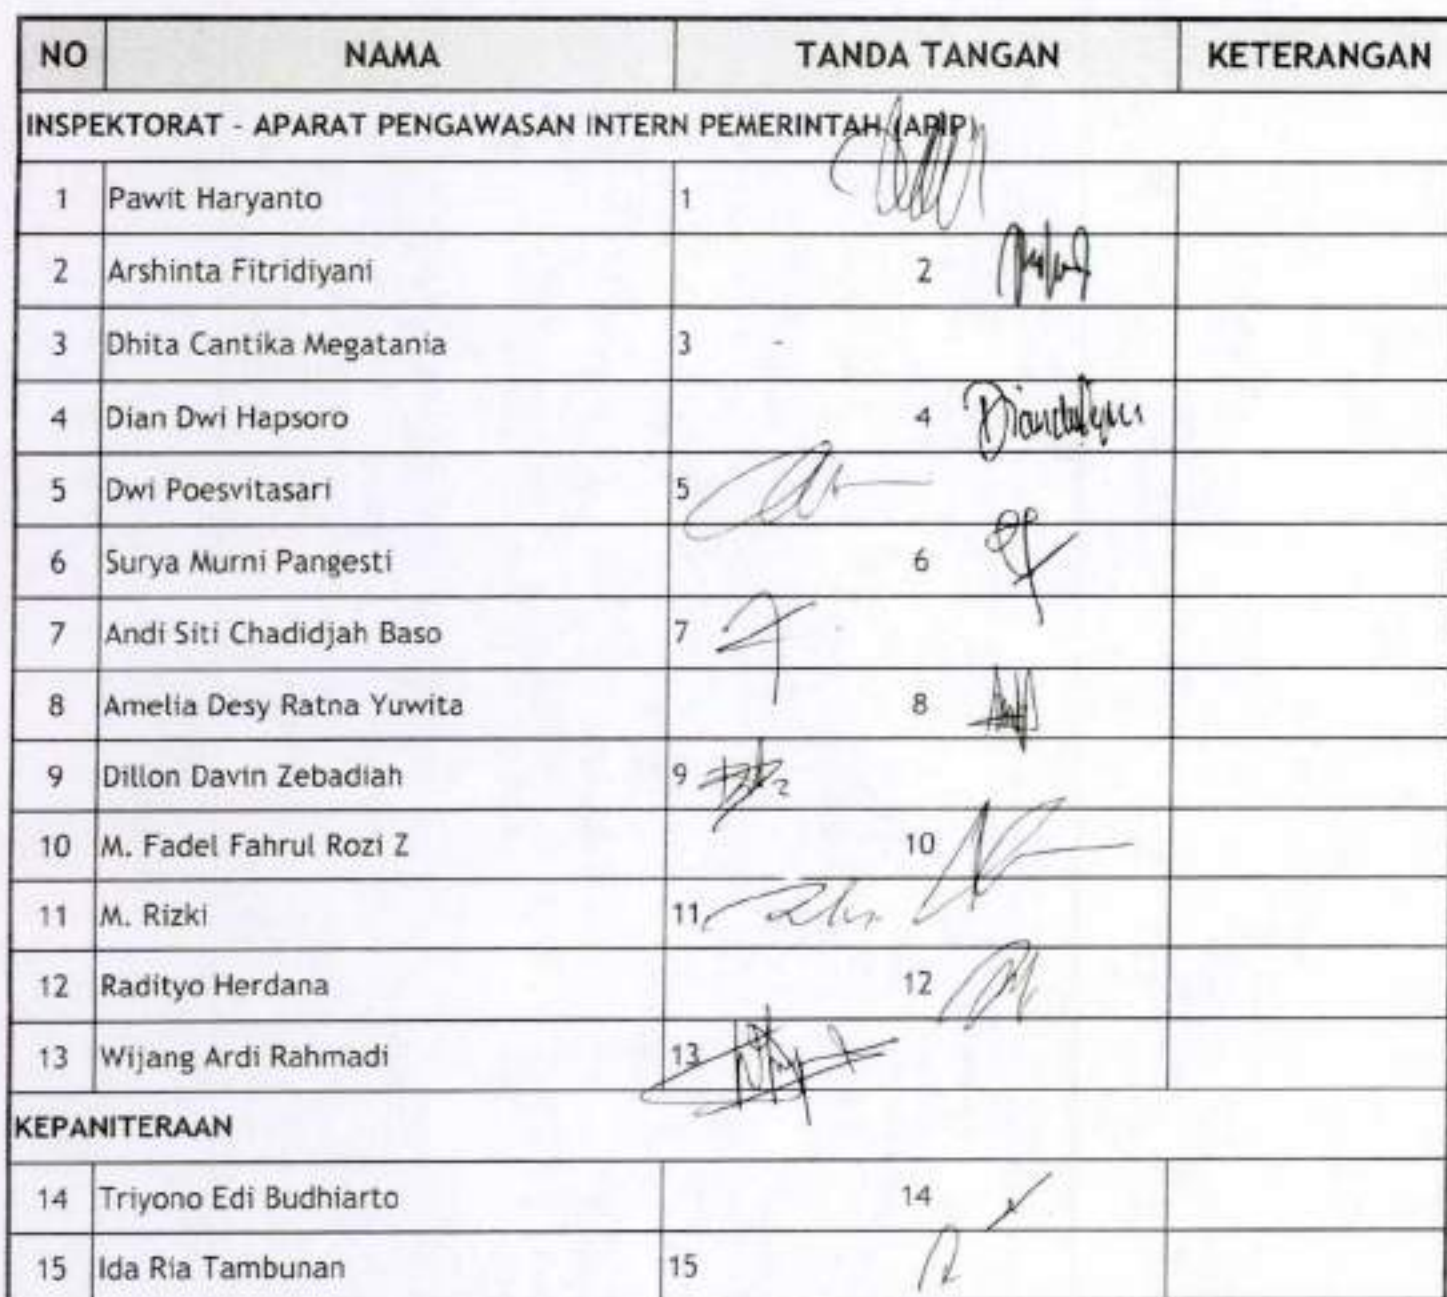 NO NAMA TANDA TANGAN KETERANGAN
INSPEKTORAT - APARAT PENGAWASAN INTERN PEMERINTAH (APIP)
1 Pawit Haryanto 1
2 Arshinta Fitridiyani 2
3 Dhita Cantika Megatania 3 -
4 Dian Dwi Hapsoro 4
5 Dwi Poesvitasari 5
6 Surya Murni Pangesti 6
7 Andi Siti Chadidjah Baso 7
8 Amelia Desy Ratna Yuwita 8
9 Dillon Davin Zebadiah 9
10 M. Fadel Fahrul Rozi Z 10
11 M. Rizki 11
12 Radityo Herdana 12
13 Wijang Ardi Rahmadi 13
KEPANITERAAN
14 Triyono Edi Budhiarto 14
15 Ida Ria Tambunan 15